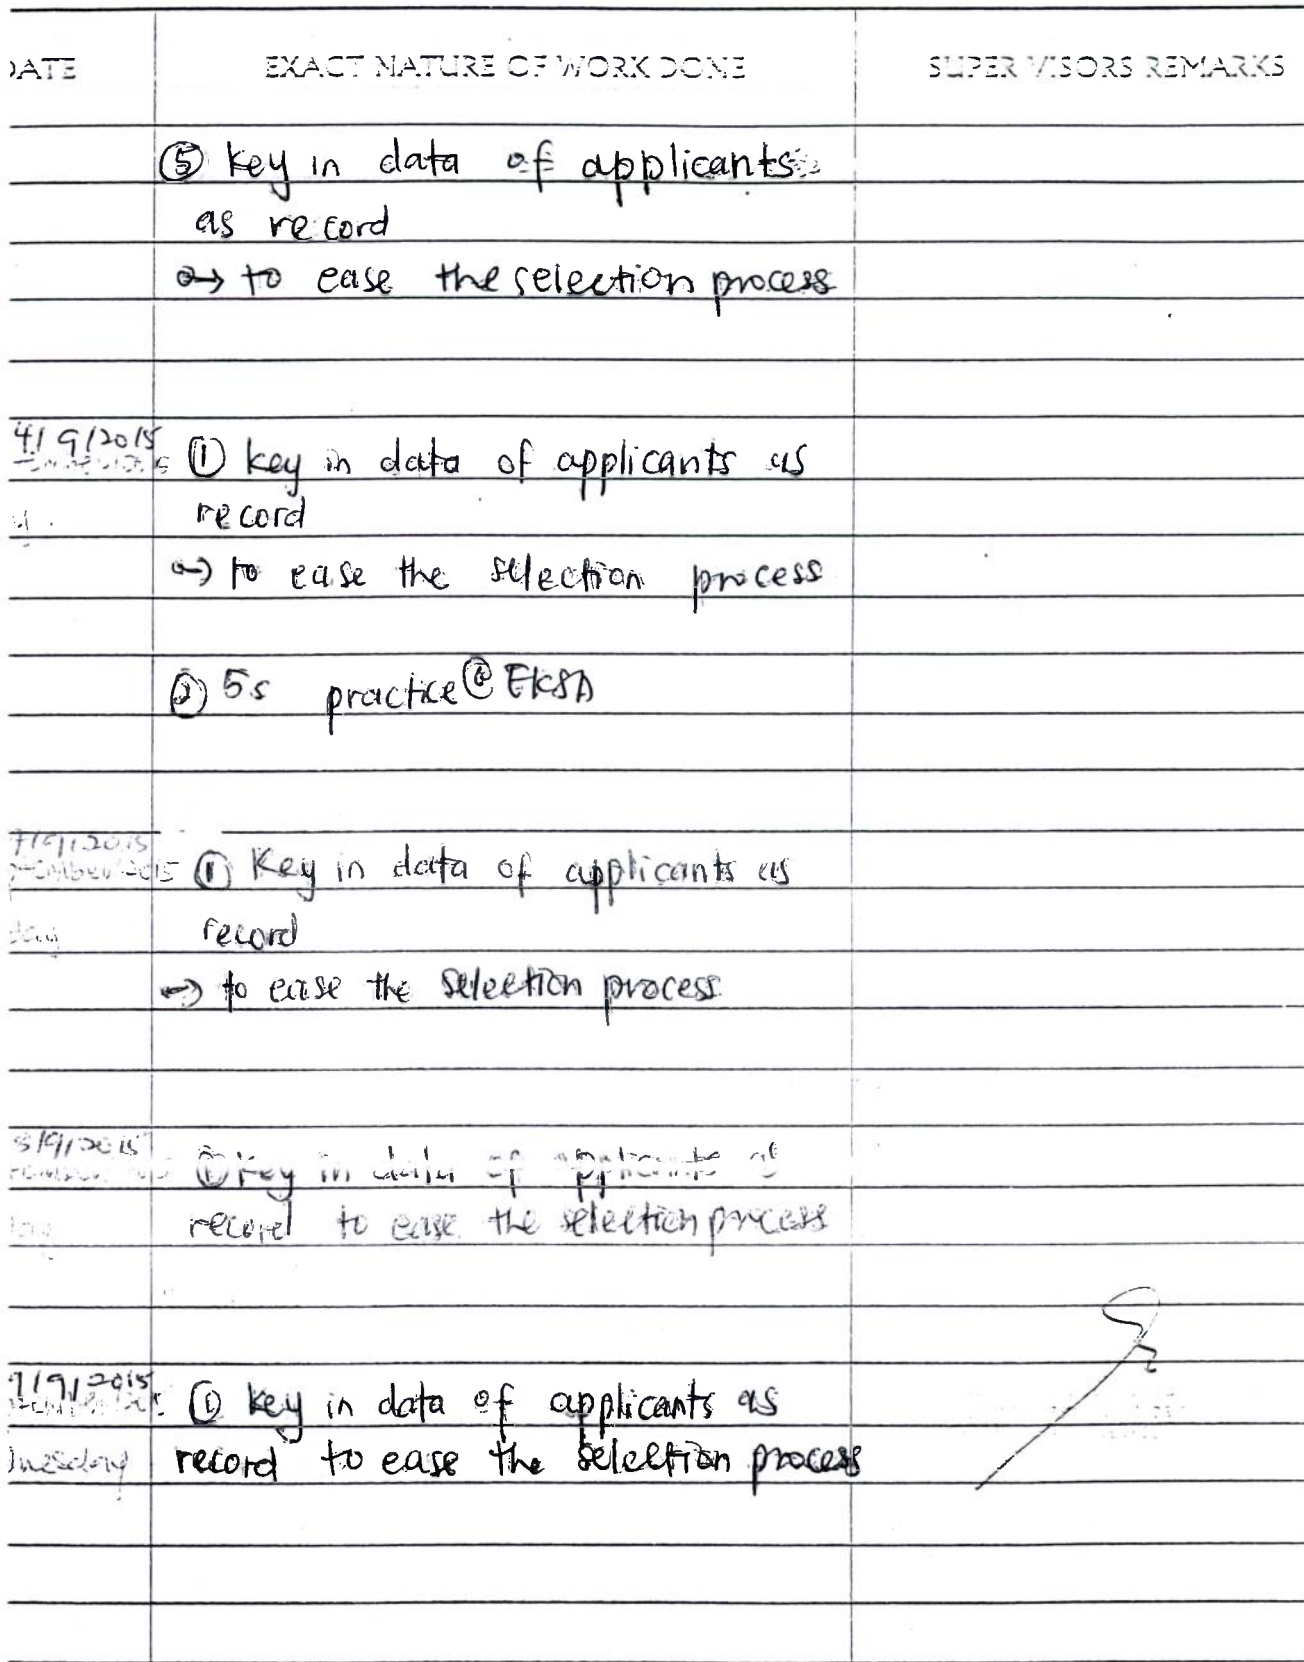 DATE EXACT NATURE OF WORK DONE SUPERVISORS REMARKS
⑤ key in data of applicants
as record
→ to ease the selection process
4/9/2015 ① key in data of applicants as
record
→ to ease the selection process
② 5s practice @ EKSA
7/9/2015
① Key in data of applicants as
day record
→ to ease the selection process
8/9/2015
① Key in data of applicants as
record to ease the selection process
9/9/2015
① key in data of applicants as
record to ease the selection process